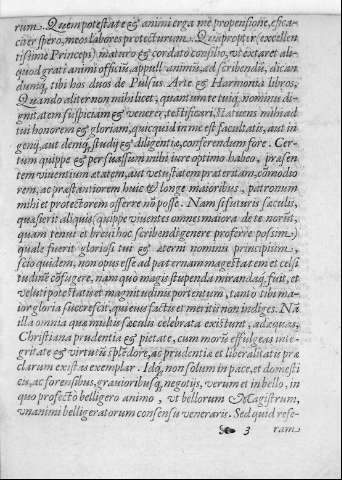 rum. Quem potestate & animi erga me propensione, effica-
citer spero, meos labores protecturum. Quapropter (excellen
tissime Princeps) maturo & cordato consilio, vt extaret ali-
quod grati animi officiũ, appuli animũ, ad scribendũ, dican
dumq́; tibi hos duos de Pulsus Arte & Harmonia libros,
Quando aliter non mihi licet, quantum te tuiq́; nominis di-
gnitatem suspiciam & venerer, testificari, statuens mihi ad
tui honorem & gloriam, quicquid in me est facultatis, aut in
genij, aut deniq́; studij & diligentiæ, conferendum fore. Cer-
tum quippe & persuassum mihi iure optimo habeo, præsen
tem viuentium ætatem, aut vetustatem præteritam, cõmodio
rem, ac præstantiorem huic & longe maioribus, patronum
mihi et protectorem offerre nõ posse. Nam si futuris sæculis,
quæsierit aliquis (quippe viuentes omnes maiora de te norũt,
quam tenui et breui hoc scribendi genere proferre possim)
quale fuerit gloriosi tui & æterni nominis principium,
scio quidem, non opus esse ad paternam magestatem et celsi
tudinẽ cõfugere, nam quo magis stupenda mirandaq́; fuit, et
veluti potestatis et magnitudinis portentum, tanto tibi ma-
ior gloria succrescit, qui eius factis et meritis non indiges. Nã
illa omnia quæ multis sæculis celebrata existunt, adæquas,
Christiana prudentia & pietate, cum moris effulgeas inte-
gritate & virtutũ splẽdore, ac prudentiæ et liberalitatis præ
clarum existas exemplar. Idq́; non solum in pace, et domesti
cis, ac forensibus, grauioribusq́; negotijs, verum et in bello, in
quo profecto belligero animo, vt bellorum Magistrum,
vnanimi belligeratorum consensu veneraris. Sed quid refe-
3 ram